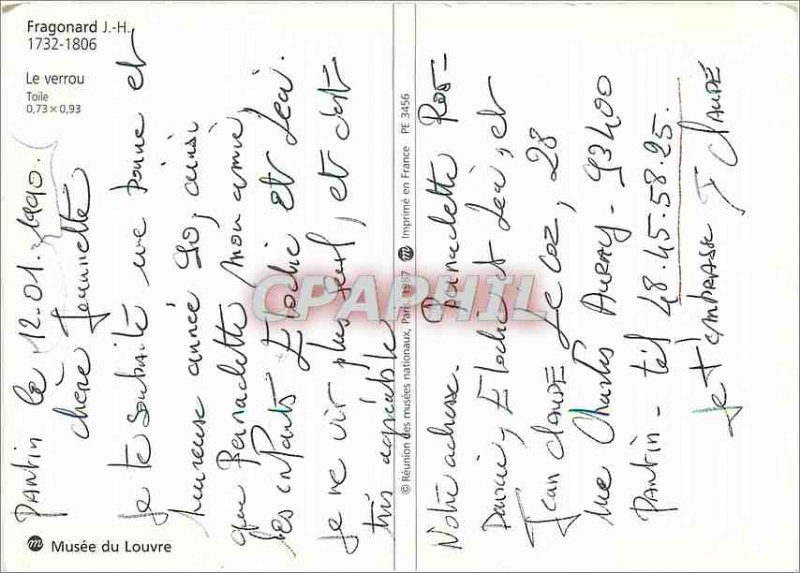 Fragonard J.-H.
1732-1806
Le verrou
Toile
0,73 × 0,93
Musée du Louvre
Pantin le 12.01.1990.
chère
Je te souhaite une bonne et
heureuse année 90, ainsi
que Bernadette mon amie
les enfants Elodie et Leïi.
Je ne vis plus seul, et c'est
très agréable
© Réunion des musées nationaux, Paris 1987 Imprimé en France PE 3456
Notre adresse. Bernadette
Elodie et Leïi, et
Jean CLAUDE Le Coz, 28
rue Charles AURAY - 93400
PANTIN - tél 48.45.58.25.
Je t'EMBRASSE J CLAUDE
CPAPHIL